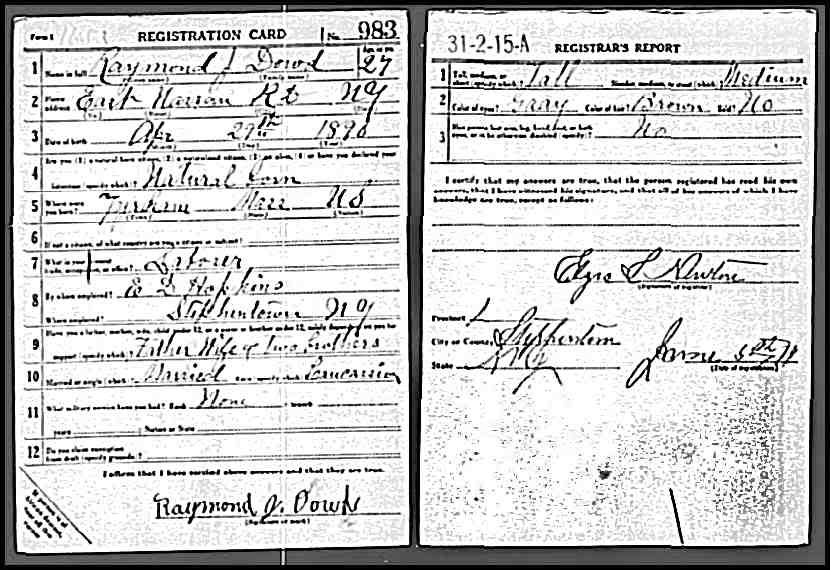 Form 1 REGISTRATION CARD No. 983
1 Name in full Raymond J Dowd Age, in yrs. 27
(Given name) (Family name)
2 Home address East Nassau Rd NY
(No.) (Street)
3 Date of birth Apr 29th 1890
(Month) (Day) (Year)
4 Are you (1) a natural born citizen, (2) a naturalized citizen, (3) an alien, (4) or have you declared your
intention (specify which)? Natural born
5 Where were you born? Mass US
(Town) (State) (Nation)
6 If not a citizen, of what country are you a citizen or subject?
7 What is your present trade, occupation, or office? Laborer
8 By whom employed? E D Hopkins
Where employed? Stephentown NY
9 Have you a father, mother, wife, child under 12, or a sister or brother under 12, solely dependent on you for
support (specify which)? Father Wife & two brothers
10 Married or single (which)? Married Race (specify which)? Caucasian
11 What military service have you had? Rank None ; branch
years ; Nation or State
12 Do you claim exemption from draft (specify grounds)?
I affirm that I have verified above answers and that they are true.
Raymond J. Dowd
(Signature or mark)
31-2-15-A REGISTRAR'S REPORT
1 Tall, medium, or short (specify which)? Tall Slender, medium, or stout (which)? Medium
2 Color of eyes? Gray Color of hair? Brown Bald? No
3 Has person lost arm, leg, hand, foot, or both eyes, or is he otherwise disabled (specify)? No
I certify that my answers are true, that the person registered has read his own
answers, that I have witnessed his signature, and that all of his answers of which I have
knowledge are true, except as follows:
Newton
(Signature of registrar)
Precinct 1
City or County Stephentown
State NY
June 5th
(Date of registration)